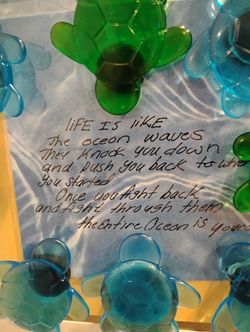 liFE Is liKE
The ocean waves
They Knock you down
and Push you back to where
you started
Once you fight back
and fight through them
the Entire Ocean is yours